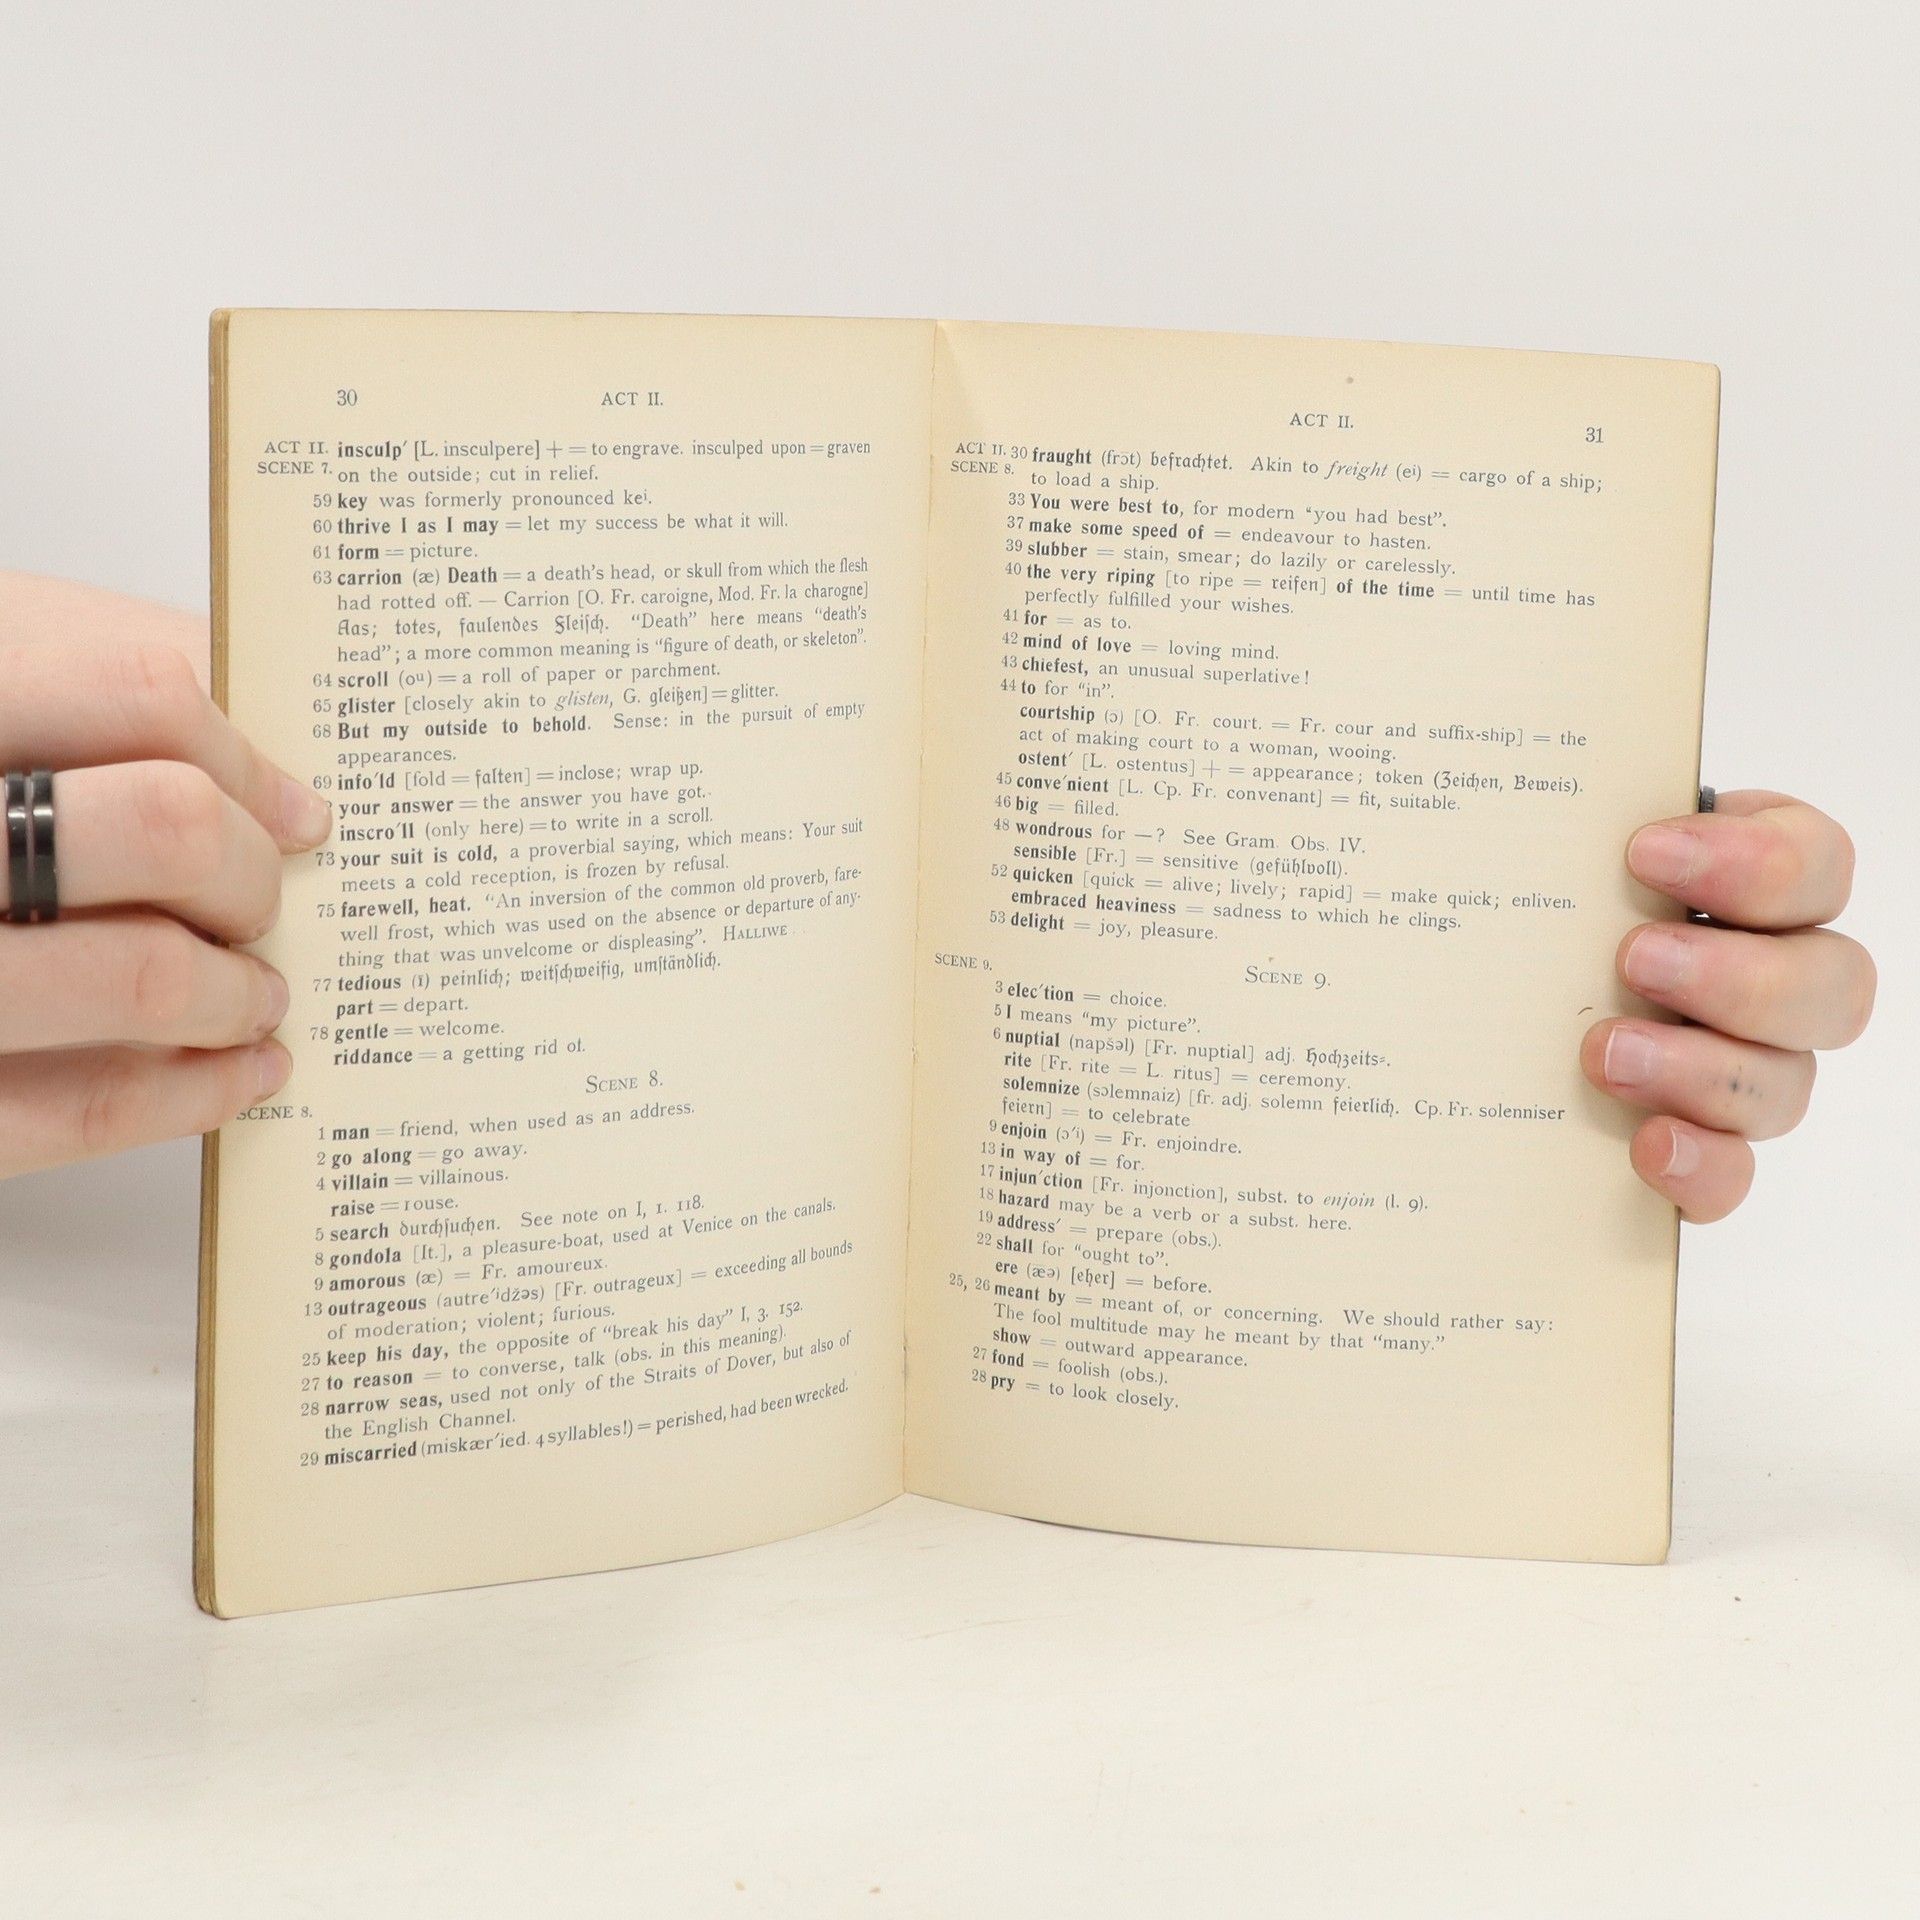 30 ACT II.
ACT II. insculp′ [L. insculpere] + = to engrave. insculped upon = graven
SCENE 7. on the outside; cut in relief.
59 key was formerly pronounced keⁱ.
60 thrive I as I may = let my success be what it will.
61 form = picture.
63 carrion (æ) Death = a death's head, or skull from which the flesh
had rotted off. — Carrion [O. Fr. caroigne, Mod. Fr. la charogne]
Aas; totes, faulendes Fleiſch. “Death” here means “death's
head”; a more common meaning is “figure of death, or skeleton”.
64 scroll (oᵘ) = a roll of paper or parchment.
65 glister [closely akin to glisten, G. gleißen] = glitter.
68 But my outside to behold. Sense: in the pursuit of empty
appearances.
69 info′ld [fold = falten] = inclose; wrap up.
your answer = the answer you have got.
inscro′ll (only here) = to write in a scroll.
73 your suit is cold, a proverbial saying, which means: Your suit
meets a cold reception, is frozen by refusal.
75 farewell, heat. “An inversion of the common old proverb, fare-
well frost, which was used on the absence or departure of any-
thing that was unvelcome or displeasing”. HALLIWE
77 tedious (ī) peinlich; weitſchweifig, umſtändlich.
part = depart.
78 gentle = welcome.
riddance = a getting rid of.
SCENE 8.
SCENE 8.
1 man = friend, when used as an address.
2 go along = go away.
4 villain = villainous.
raise = rouse.
5 search durchſuchen. See note on I, 1. 118.
8 gondola [It.], a pleasure-boat, used at Venice on the canals.
9 amorous (æ) = Fr. amoureux.
13 outrageous (autreʹⁱdžəs) [Fr. outrageux] = exceeding all bounds
of moderation; violent; furious.
25 keep his day, the opposite of “break his day” I, 3. 152.
27 to reason = to converse, talk (obs. in this meaning).
28 narrow seas, used not only of the Straits of Dover, but also of
the English Channel.
29 miscarried (miskær′ied. 4 syllables!) = perished, had been wrecked.
ACT II. 31
ACT II. 30 fraught (frɔ̄t) befrachtet. Akin to freight (eⁱ) = cargo of a ship;
SCENE 8. to load a ship.
33 You were best to, for modern “you had best”.
37 make some speed of = endeavour to hasten.
39 slubber = stain, smear; do lazily or carelessly.
40 the very riping [to ripe = reifen] of the time = until time has
perfectly fulfilled your wishes.
41 for = as to.
42 mind of love = loving mind.
43 chiefest, an unusual superlative!
44 to for “in”.
courtship (ɔ̄) [O. Fr. court. = Fr. cour and suffix-ship] = the
act of making court to a woman, wooing.
ostent′ [L. ostentus] + = appearance; token (Zeichen, Beweis).
45 conve′nient [L. Cp. Fr. convenant] = fit, suitable.
46 big = filled.
48 wondrous for —? See Gram. Obs. IV.
sensible [Fr.] = sensitive (gefühlvoll).
52 quicken [quick = alive; lively; rapid] = make quick; enliven.
embraced heaviness = sadness to which he clings.
53 delight = joy, pleasure.
SCENE 9.
SCENE 9.
3 elec′tion = choice.
5 I means “my picture”.
6 nuptial (napšəl) [Fr. nuptial] adj. Hochzeits=.
rite [Fr. rite = L. ritus] = ceremony.
solemnize (sɔlemnaiz) [fr. adj. solemn feierlich. Cp. Fr. solenniser
feiern] = to celebrate
9 enjoin (ɔ′ⁱ) = Fr. enjoindre.
13 in way of = for.
17 injun′ction [Fr. injonction], subst. to enjoin (l. 9).
18 hazard may be a verb or a subst. here.
19 address′ = prepare (obs.).
22 shall for “ought to”.
ere (æə) [eher] = before.
25, 26 meant by = meant of, or concerning. We should rather say:
The fool multitude may he meant by that “many.”
show = outward appearance.
27 fond = foolish (obs.).
28 pry = to look closely.